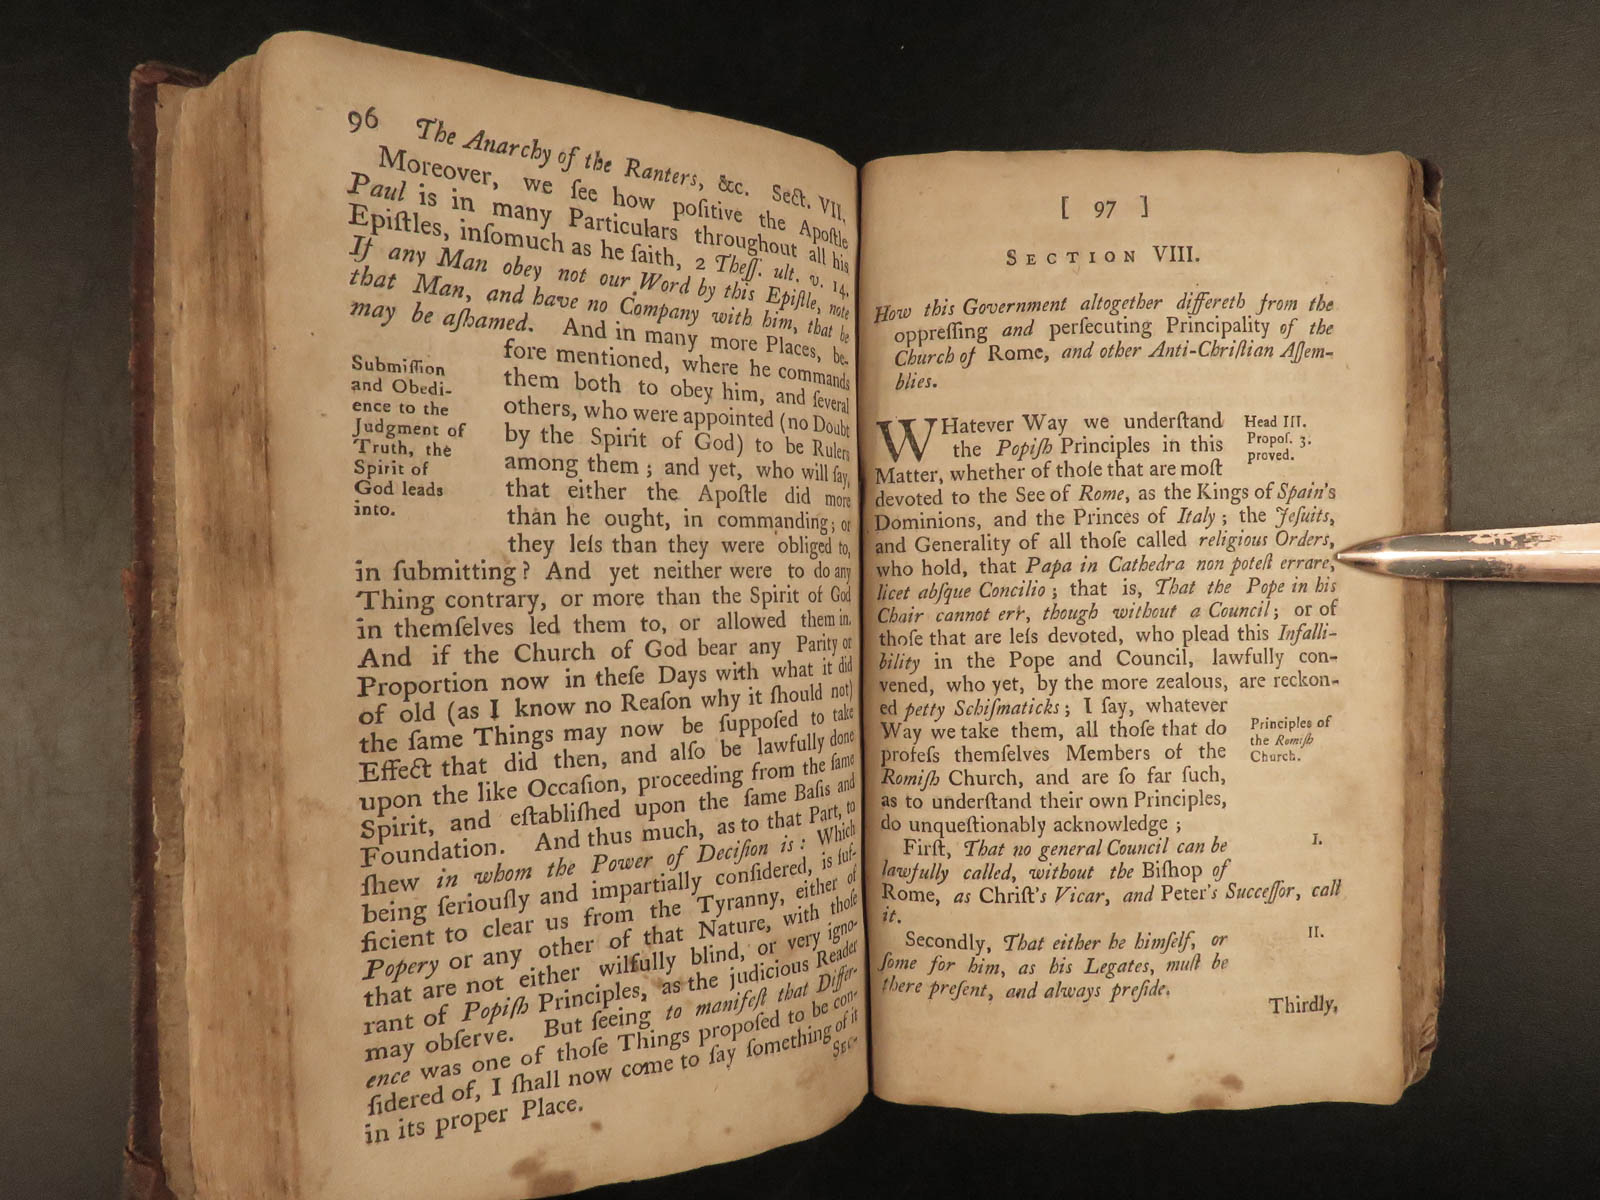 96 The Anarchy of the Ranters, &c. Sect. VII.
Moreover, we ſee how poſitive the Apoſtle
Paul is in many Particulars throughout all his
Epiſtles, inſomuch as he ſaith, 2 Theſſ. ult. v. 14.
If any Man obey not our Word by this Epiſtle, note
that Man, and have no Company with him, that he
may be aſhamed. And in many more Places, be-
fore mentioned, where he commands
them both to obey him, and ſeveral
others, who were appointed (no Doubt
by the Spirit of God) to be Rulers
among them; and yet, who will ſay,
that either the Apoſtle did more
than he ought, in commanding; or
they leſs than they were obliged to,
Submiſſion
and Obedi-
ence to the
Judgment of
Truth, the
Spirit of
God leads
into.
in ſubmitting? And yet neither were to do any
Thing contrary, or more than the Spirit of God
in themſelves led them to, or allowed them in.
And if the Church of God bear any Parity or
Proportion now in theſe Days with what it did
of old (as I know no Reaſon why it ſhould not)
the ſame Things may now be ſuppoſed to take
Effect that did then, and alſo be lawfully done
upon the like Occaſion, proceeding from the ſame
Spirit, and eſtabliſhed upon the ſame Baſis and
Foundation. And thus much, as to that Part, to
ſhew in whom the Power of Deciſion is: Which
being ſeriouſly and impartially conſidered, is ſuf-
ficient to clear us from the Tyranny, either of
Popery or any other of that Nature, with thoſe
that are not either wilfully blind, or very igno-
rant of Popiſh Principles, as the judicious Reader
may obſerve. But ſeeing to manifeſt that Differ-
ence was one of thoſe Things propoſed to be con-
ſidered of, I ſhall now come to ſay ſomething of it
in its proper Place.
SEC-
[ 97 ]
SECTION VIII.
How this Government altogether differeth from the
oppreſſing and perſecuting Principality of the
Church of Rome, and other Anti-Chriſtian Aſſem-
blies.
WHatever Way we underſtand
the Popiſh Principles in this
Matter, whether of thoſe that are moſt
Head III.
Propoſ. 3.
proved.
devoted to the See of Rome, as the Kings of Spain's
Dominions, and the Princes of Italy; the Jeſuits,
and Generality of all thoſe called religious Orders,
who hold, that Papa in Cathedra non poteſt errare,
licet abſque Concilio; that is, That the Pope in his
Chair cannot err, though without a Council; or of
thoſe that are leſs devoted, who plead this Infalli-
bility in the Pope and Council, lawfully con-
vened, who yet, by the more zealous, are reckon-
ed petty Schiſmaticks; I ſay, whatever
Way we take them, all thoſe that do
profeſs themſelves Members of the
Romiſh Church, and are ſo far ſuch,
as to underſtand their own Principles,
do unqueſtionably acknowledge;
Principles of
the Romiſh
Church.
Firſt, That no general Council can be
lawfully called, without the Biſhop of
Rome, as Chriſt's Vicar, and Peter's Succeſſor, call
it.
I.
Secondly, That either he himſelf, or
ſome for him, as his Legates, muſt be
there preſent, and always preſide.
II.
Thirdly,